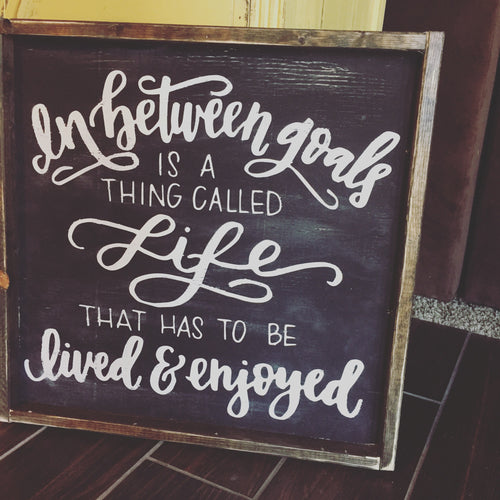 In between goals
IS A
THING CALLED
Life
THAT HAS TO BE
lived & enjoyed